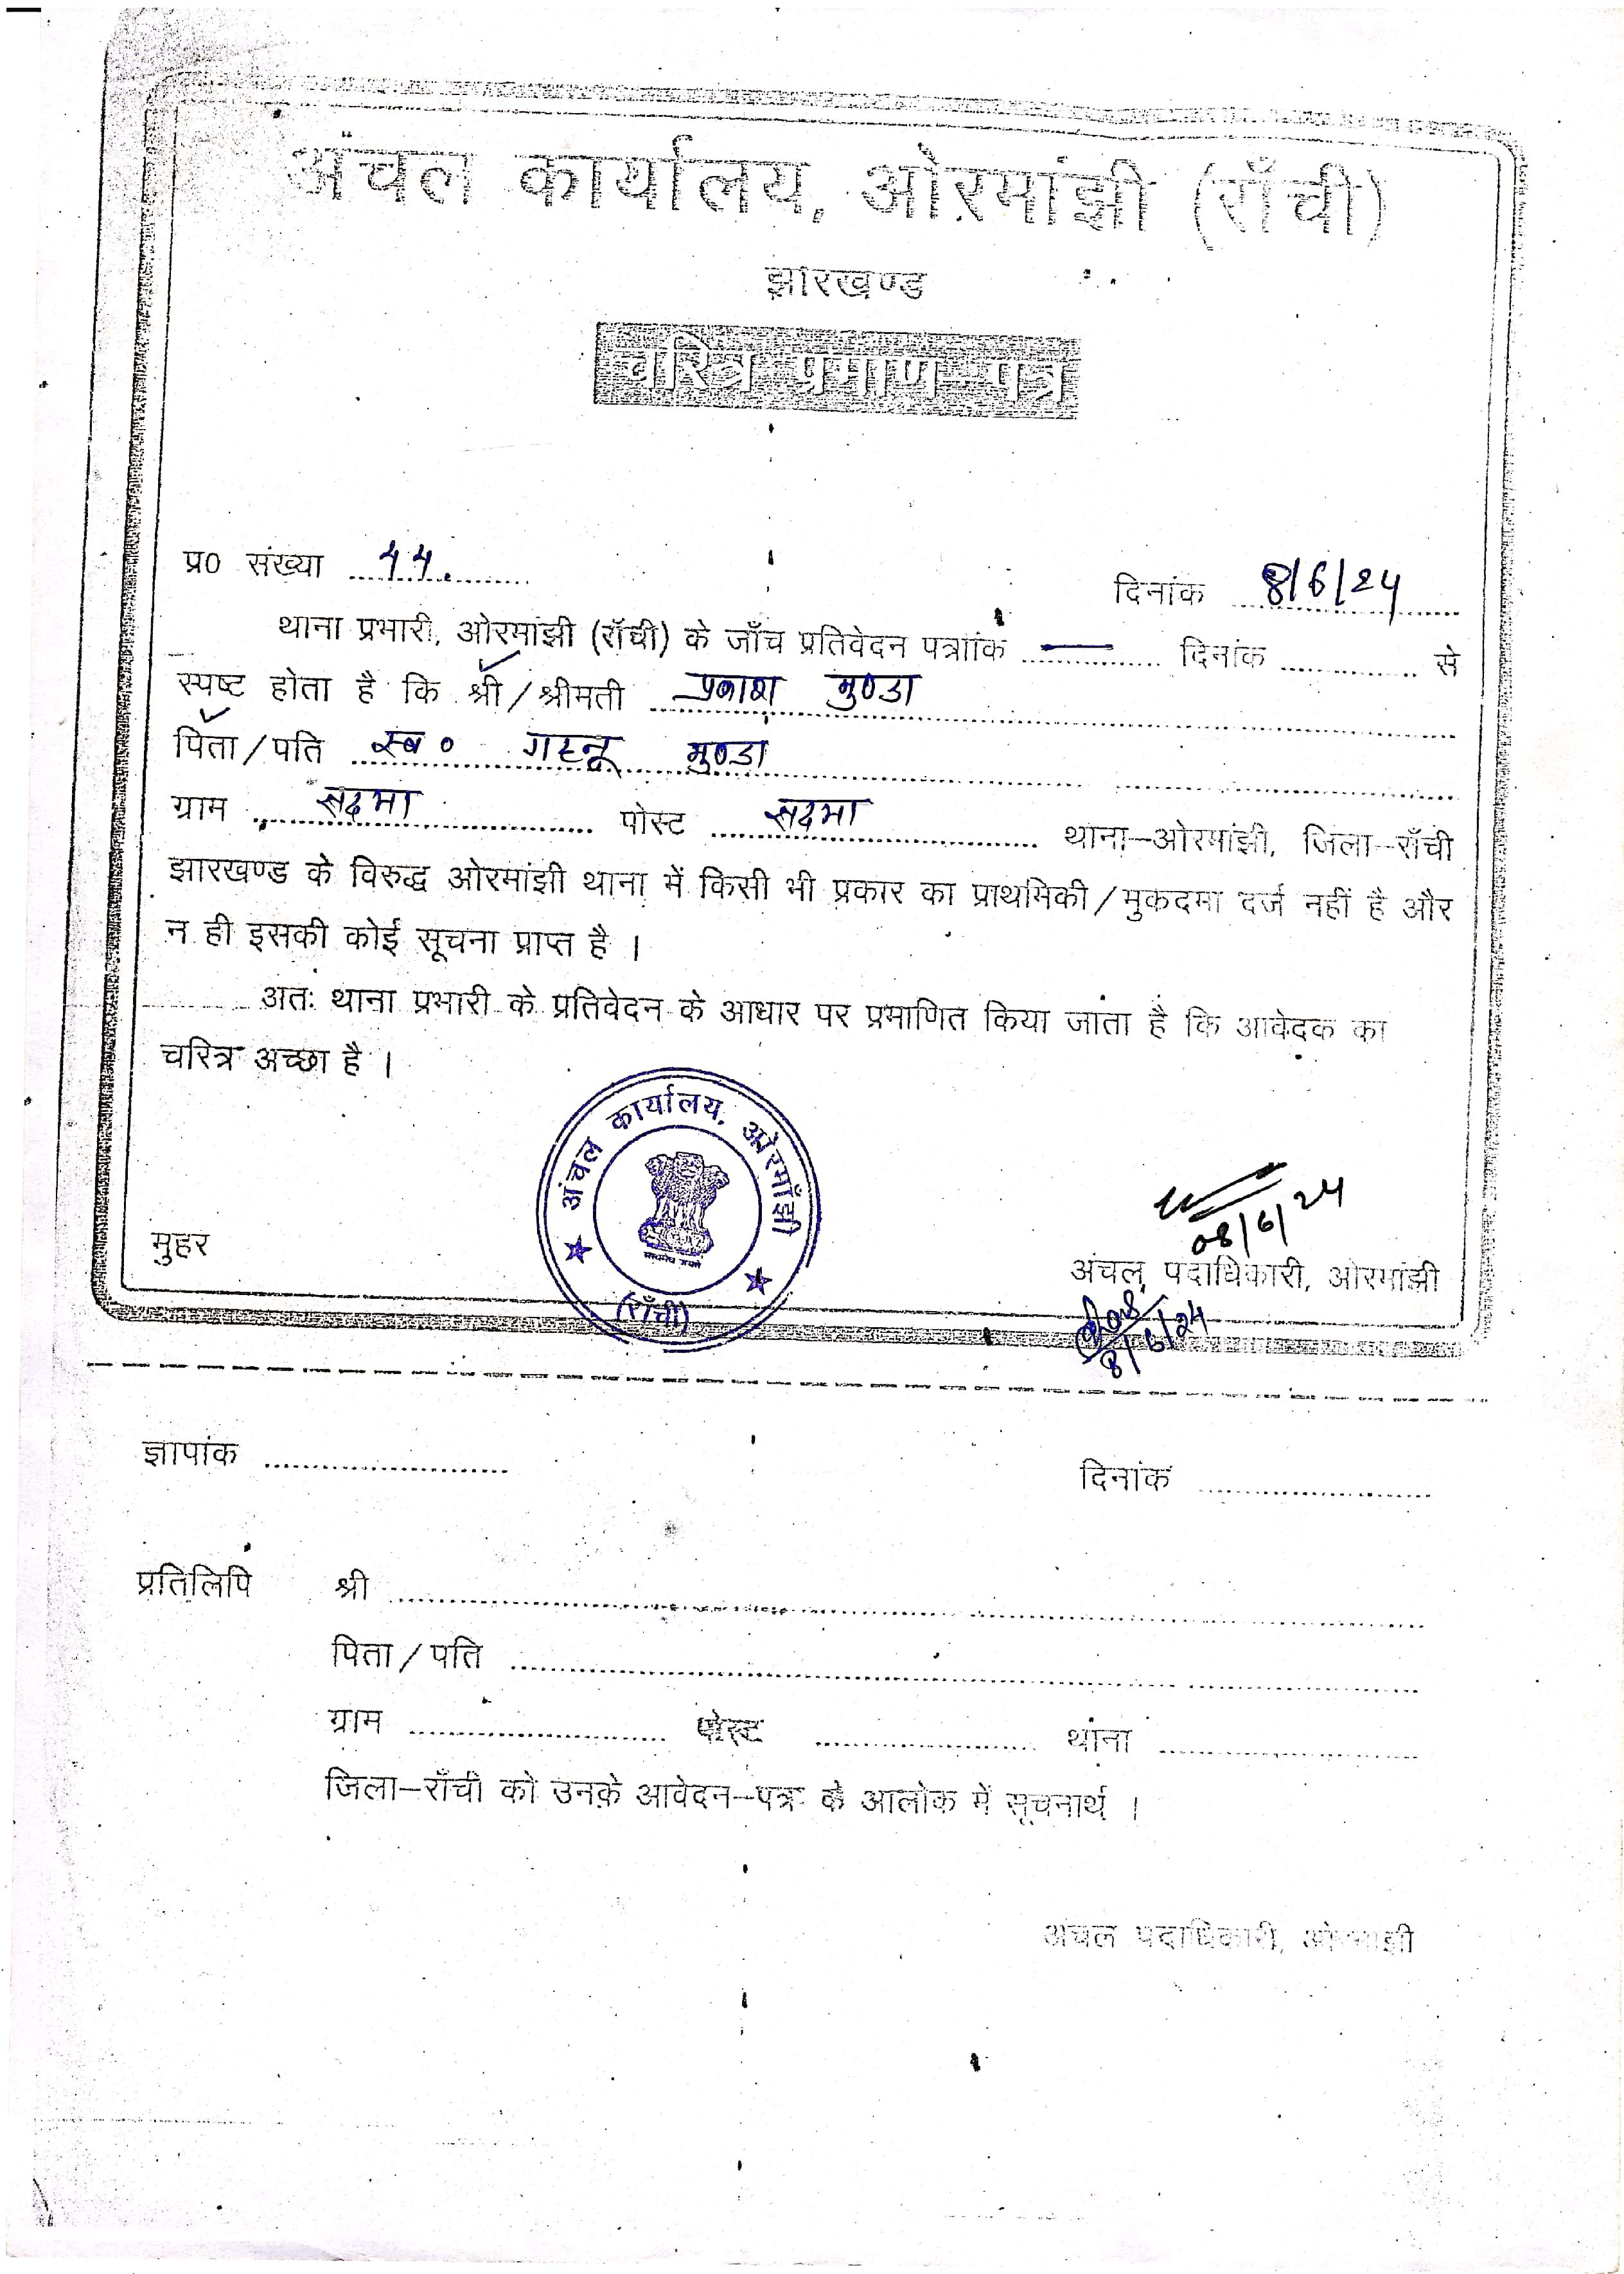 अंचल कार्यालय, ओरमांझी (राँची)
झारखण्ड
चरित्र प्रमाण-पत्र
प्र० संख्या 44. दिनांक 8/6/24
थाना प्रभारी, ओरमांझी (राँची) के जाँच प्रतिवेदन पत्रांक — दिनांक से
स्पष्ट होता है कि श्री / श्रीमती प्रकाश मुण्डा
पिता / पति स्व० मुण्डा
ग्राम सदमा पोस्ट सदमा थाना-ओरमांझी, जिला-राँची
झारखण्ड के विरुद्ध ओरमांझी थाना में किसी भी प्रकार का प्राथमिकी / मुकदमा दर्ज नहीं है और
न ही इसकी कोई सूचना प्राप्त है ।
अतः थाना प्रभारी के प्रतिवेदन के आधार पर प्रमाणित किया जाता है कि आवेदक का
चरित्र अच्छा है ।
अंचल कार्यालय, ओरमाँझी
(राँची)
08/6/24
मुहर
अंचल पदाधिकारी, ओरमांझी
8/6/24
ज्ञापांक दिनांक
प्रतिलिपि श्री
पिता / पति
ग्राम पोस्ट थाना
जिला-राँची को उनके आवेदन-पत्र के आलोक में सूचनार्थ ।
अंचल पदाधिकारी, ओरमांझी